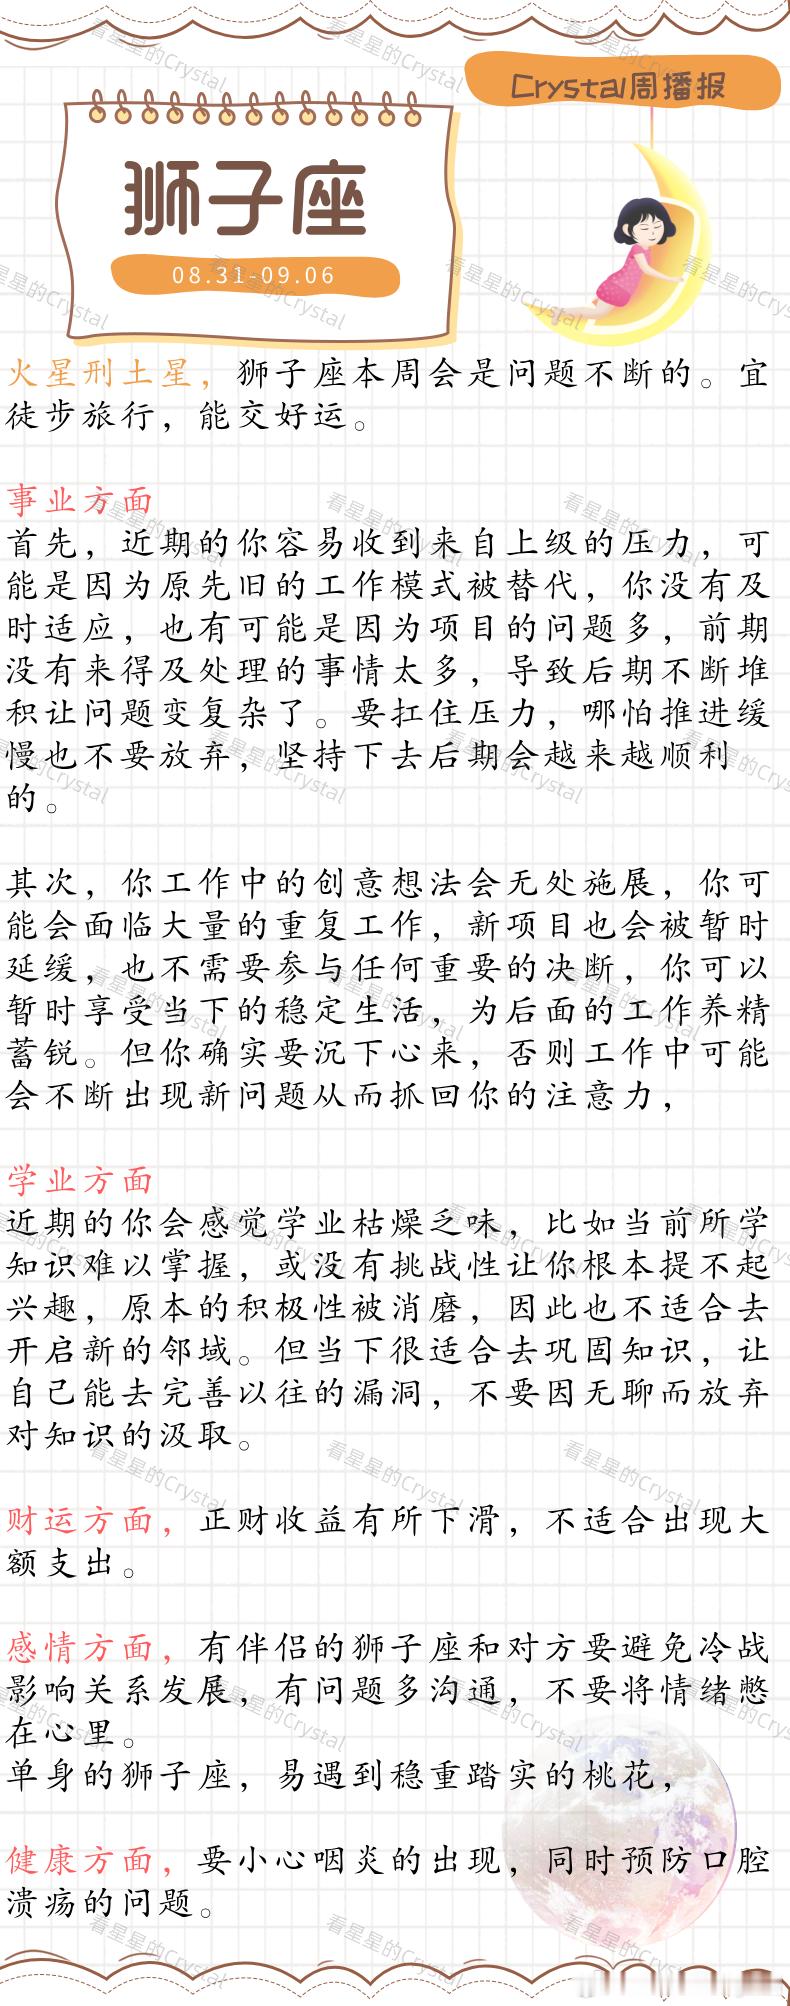 Crystal周播报
狮子座
08.31-09.06
火星刑土星，狮子座本周会是问题不断的。宜
徒步旅行，能交好运。
事业方面
首先，近期的你容易收到来自上级的压力，可
能是因为原先旧的工作模式被替代，你没有及
时适应，也有可能是因为项目的问题多，前期
没有来得及处理的事情太多，导致后期不断堆
积让问题变复杂了。要扛住压力，哪怕推进缓
慢也不要放弃，坚持下去后期会越来越顺利
的。
其次，你工作中的创意想法会无处施展，你可
能会面临大量的重复工作，新项目也会被暂时
延缓，也不需要参与任何重要的决断，你可以
暂时享受当下的稳定生活，为后面的工作养精
蓄锐。但你确实要沉下心来，否则工作中可能
会不断出现新问题从而抓回你的注意力，
学业方面
近期的你会感觉学业枯燥乏味，比如当前所学
知识难以掌握，或没有挑战性让你根本提不起
兴趣，原本的积极性被消磨，因此也不适合去
开启新的邻域。但当下很适合去巩固知识，让
自己能去完善以往的漏洞，不要因无聊而放弃
对知识的汲取。
财运方面，正财收益有所下滑，不适合出现大
额支出。
感情方面，有伴侣的狮子座和对方要避免冷战
影响关系发展，有问题多沟通，不要将情绪憋
在心里。
单身的狮子座，易遇到稳重踏实的桃花，
健康方面，要小心咽炎的出现，同时预防口腔
溃疡的问题。
看星星的Crystal